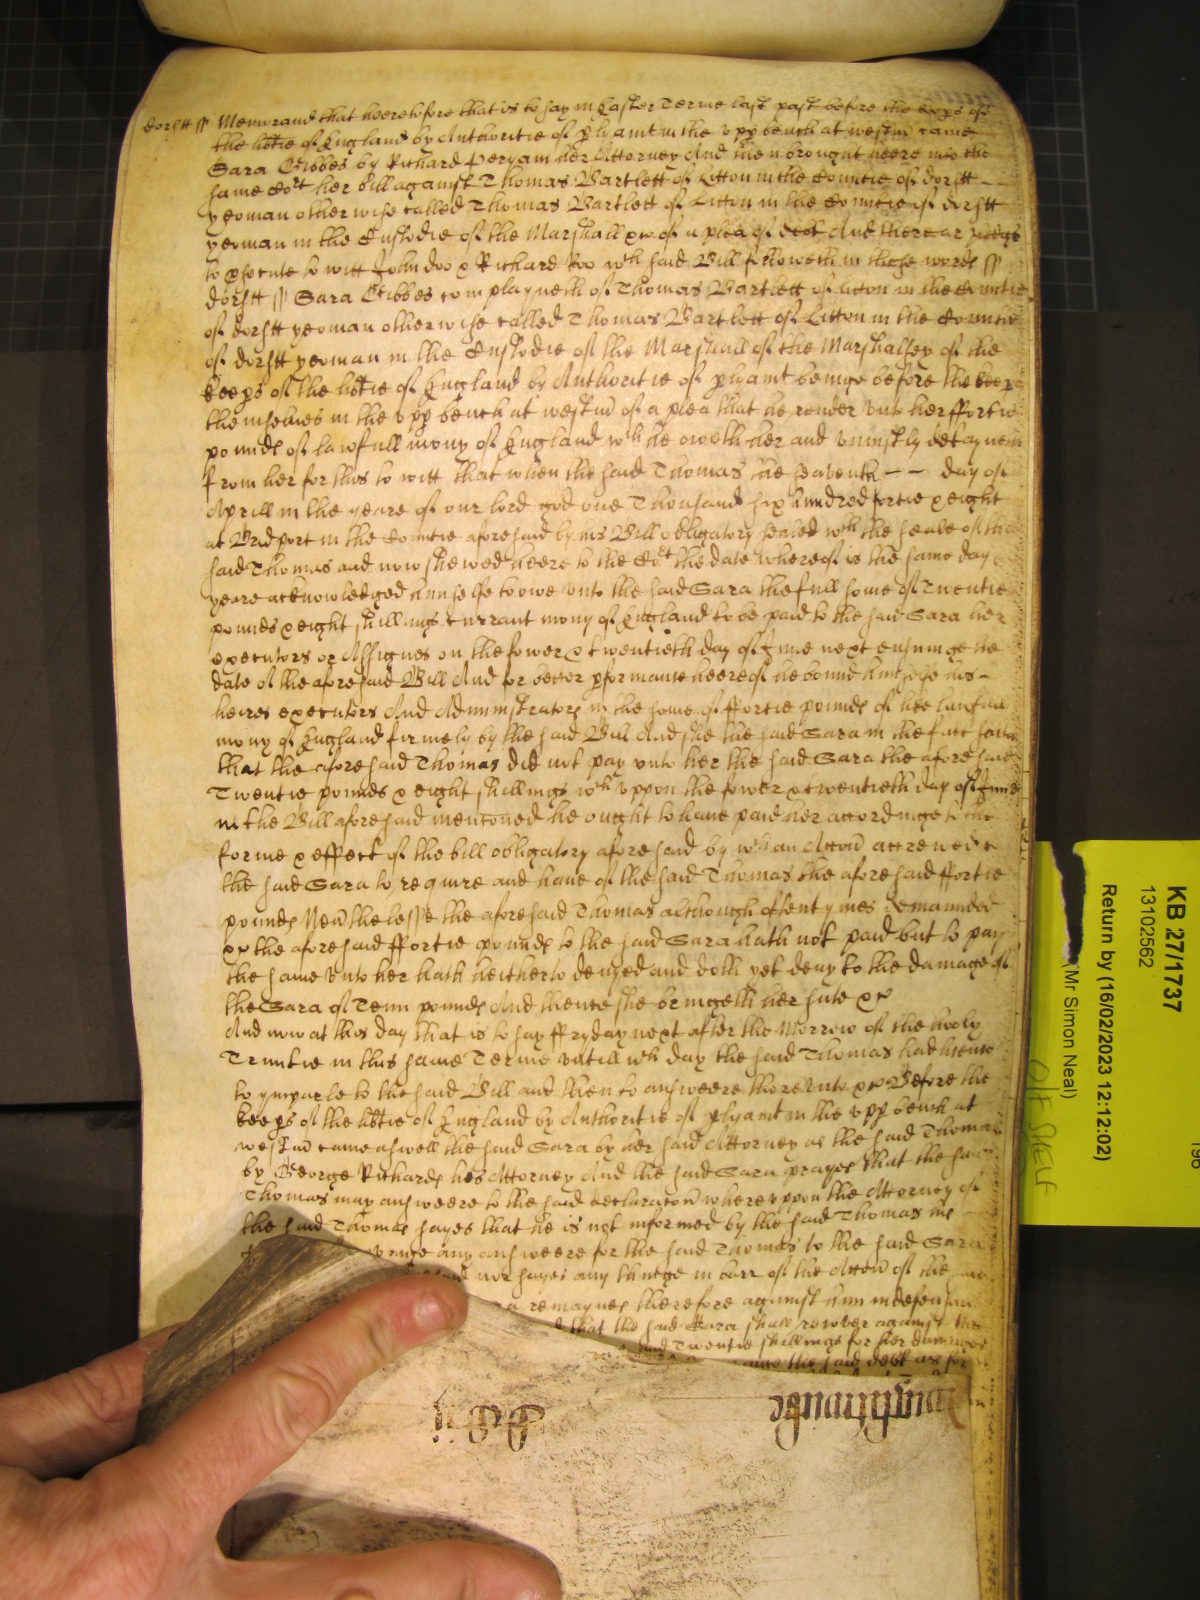 Dorstt ss Memorand that heeretofore that is to say in Easter Terme last past before the keeps of
the libtie of England by Authoritie of plyamt in the vpp bench at westm came
Sara Gibbes by Richard Peryam her Attorney And then brought heere into the
same Cort her bill against Thomas Bartlett of Litton in the Countie of dorstt
yeoman otherwise called Thomas Bartlett of Litton in the Countie of dorstt
yeoman in the Custodie of the Marshall &c of a plea of debt And there ar pledgs
to psecute to witt John doo & Richard Roo wch said Bill followeth in these words ss
dorstt ss Sara Gibbes complayneth of Thomas Bartlett of Litton in the Countie
of dorstt yeoman otherwise called Thomas Bartlett of Litton in the Countie
of dorstt yeoman in the Custodie of the Marshall of the Marshalsey of the
keeps of the libtie of England by Authoritie of plyamt beinge before the keeps
themselues in the vpp bench at westm of a plea that he render vnto her ffortie
pounds of lawfull mony of England wch he oweth her and vniustly detayneth
from her for this to witt that when the said Thomas the seaventh day of
Aprill in the yeare of our lord god one Thousand six hundred fortie & eight
at Bridport in the Countie aforesaid by his Bill obligatory sealed wth the seale of the
said Thomas and now shewed heere to the Cort the date whereof is the same day
yeare acknowledged himselfe to owe vnto the said Sara the full some of Twentie
pounds & eight shillings currant mony of England to be paid to the said Sara her
executors or Assignes on the fower & twentieth day of June next ensuinge the
date of the aforesaid Bill And for better pformance heereof he bound himselfe his
heires executors And Administrators in the some of ffortie pounds of like lawfull
mony of England firmely by the said Bill And she the said Sara in the fact saith
that the aforesaid Thomas did not pay vnto her the said Sara the aforesaid
Twentie pounds & eight shillings wch vppon the fower & twentieth day of June
in the Bill aforesaid mentoned he ought to haue paid her accordinge to the
forme & effect of the bill obligatory aforesaid by wch an Action accrewed to
the said Sara to require and haue of the said Thomas the aforesaid ffortie
pounds Neuthelesse the aforesaid Thomas although oftentymes demaunded
&c the aforesaid ffortie pounds to the said Sara hath not paid but to pay
the same vnto her hath heitherto denyed and doth yet deny to the damage of
the Sara of Tenn pounds And thence she bringeth her sute &c
And now at this day that is to say ffryday next after the Morrow of the hooly
Trinitie in this same Terme vntill wch day the said Thomas had licence
to ymparle to the said Bill and then to answeere therevnto &c Before the
keeps of the libtie of England by Authoritie of plyamt in the vpp bench at
westm came aswell the said Sara by her said Attorney as the said Thomas
by George Richards his Attorney And the said Sara prayes that the said
Thomas may answeere to the said declaraton wherevppon the Attorney of
the said Thomas sayes that he is not informed by the said Thomas his
any answeere for the said Thomas to the said Sara
nor sayes any thinge in barr of the Action of the
remaynes therefore against him
that the said Sara shall recover against the
said Twentie shillings for her damages
the said debt as for
KB 27/1737
13102562
Return by (16/02/2023 12:12:02)
(Mr Simon Neal)
O/F SHELF